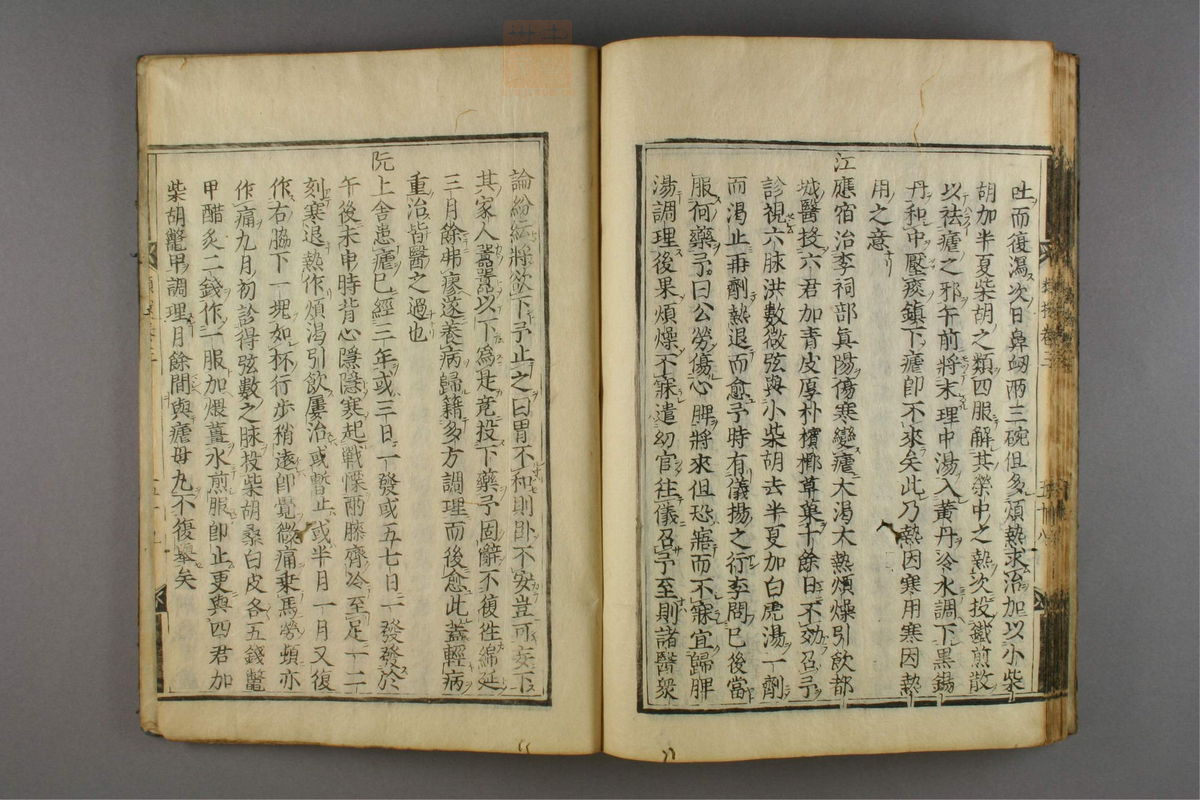 吐而復瀉次日鼻衂兩三碗但多煩熱求治加以小柴
胡加半夏柴胡之類四服解其榮中之熱次投鐵煎散
以祛瘧之邪午前將末理中湯入黃丹冷水調下黑錫
丹和中壓痰鎮下瘧卽不來矣此乃熱因寒用寒因熱
用之意
江應宿治李祠部眞陽傷寒變瘧大渴大熱煩燥引飲都
城醫投六君加青皮厚朴檳榔草菓十餘日不効召予
診視六脉洪數微弦與小柴胡去半夏加白虎湯一劑
而渴止再劑熱退而愈予時有儀揚之行李問已後當
服何藥予曰公勞傷心脾將來但恐寤而不寐宜歸脾
湯調理後果煩燥不寐遣幼官徃儀召予至則諸醫衆
論紛紜將欲下予止之曰胃不和則卧不安豈可妄下
其家人囂囂以下爲是竟投下藥予固辭不復徃綿延
三月餘弗瘳遂養病歸籍多方調理而後愈此蓋輕病
重治皆醫之過也
阮上舍患瘧已經三年或三日一發或五七日一發發於
午後未申時背心隱隱寒起戰慄兩膝齊冷至足一二
刻寒退熱作煩渴引飲屢治或暫止或半月一月又復
作右脇下一塊如杯行步稍遠卽覺微痛乘馬勞頓亦
作痛九月初診得弦數之脉投柴胡桑白皮各五錢鼈
甲醋炙二錢作一服加煨薑水煎服卽止更與四君加
柴胡鼈甲調理月餘間與瘧母丸不復舉矣